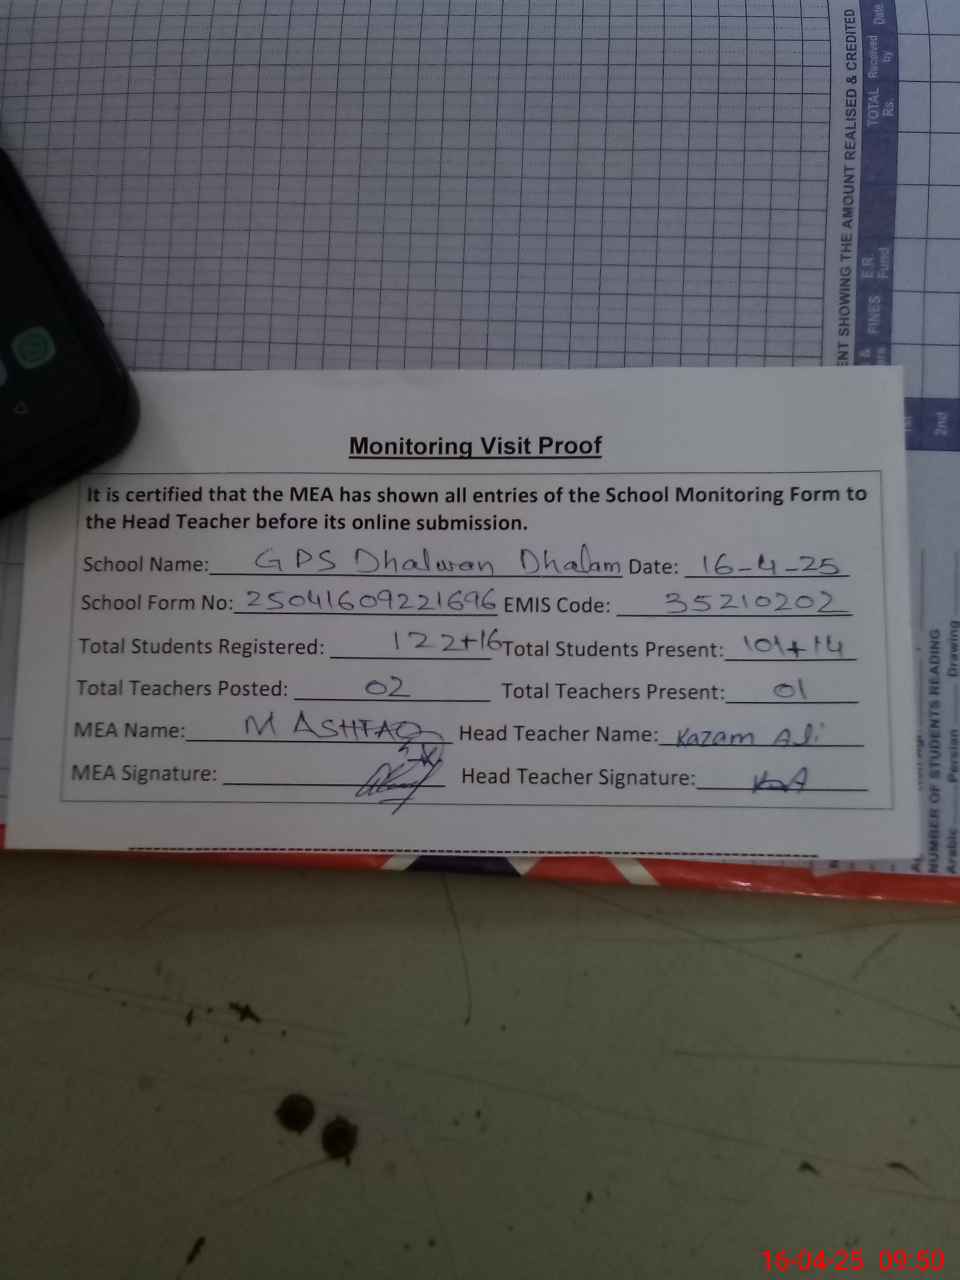 ENT SHOWING THE AMOUNT REALISED & CREDITED
& FINES E.R. Fund TOTAL Rs. Received by Date
1st 2nd
Monitoring Visit Proof
It is certified that the MEA has shown all entries of the School Monitoring Form to
the Head Teacher before its online submission.
School Name: GPS Dhalwan Dhalam Date: 16-4-25
School Form No: 25041609221696 EMIS Code: 35210202
Total Students Registered: 122+16 Total Students Present: 101+14
Total Teachers Posted: 02 Total Teachers Present: 01
MEA Name: M ASHFAQ Head Teacher Name: Kazam Ali
MEA Signature: Head Teacher Signature: KA
NUMBER OF STUDENTS READING
Arabic Persian Drawing
16-04-25 09:50